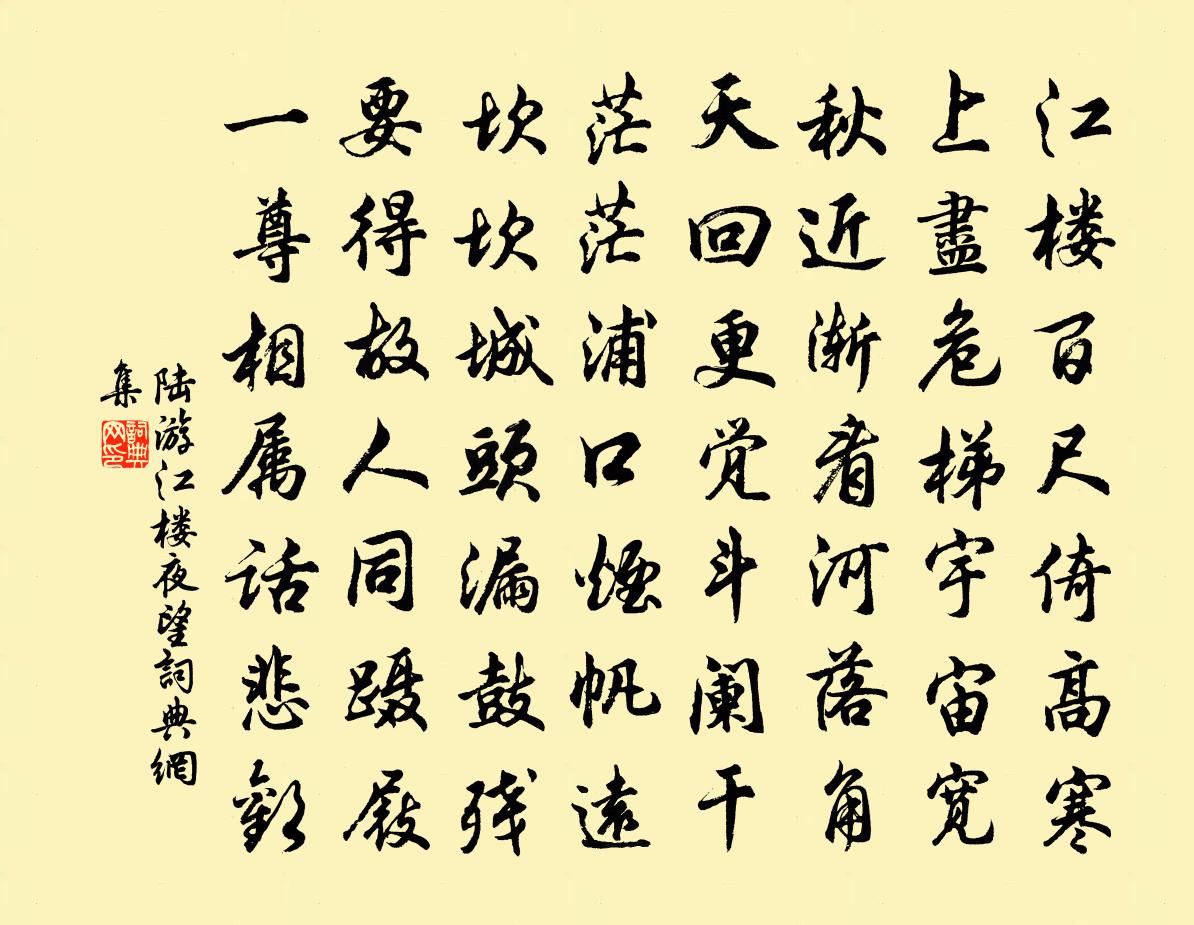 江楼百尺倚高寒
上盡危梯宇宙宽
秋近渐看河落角
天回更觉斗阑干
茫茫浦口煙帆远
坎坎城頭漏鼓残
要得故人同蹑屐
一尊相属话悲歡
陆游江楼夜望詞典網
集
詞典网印